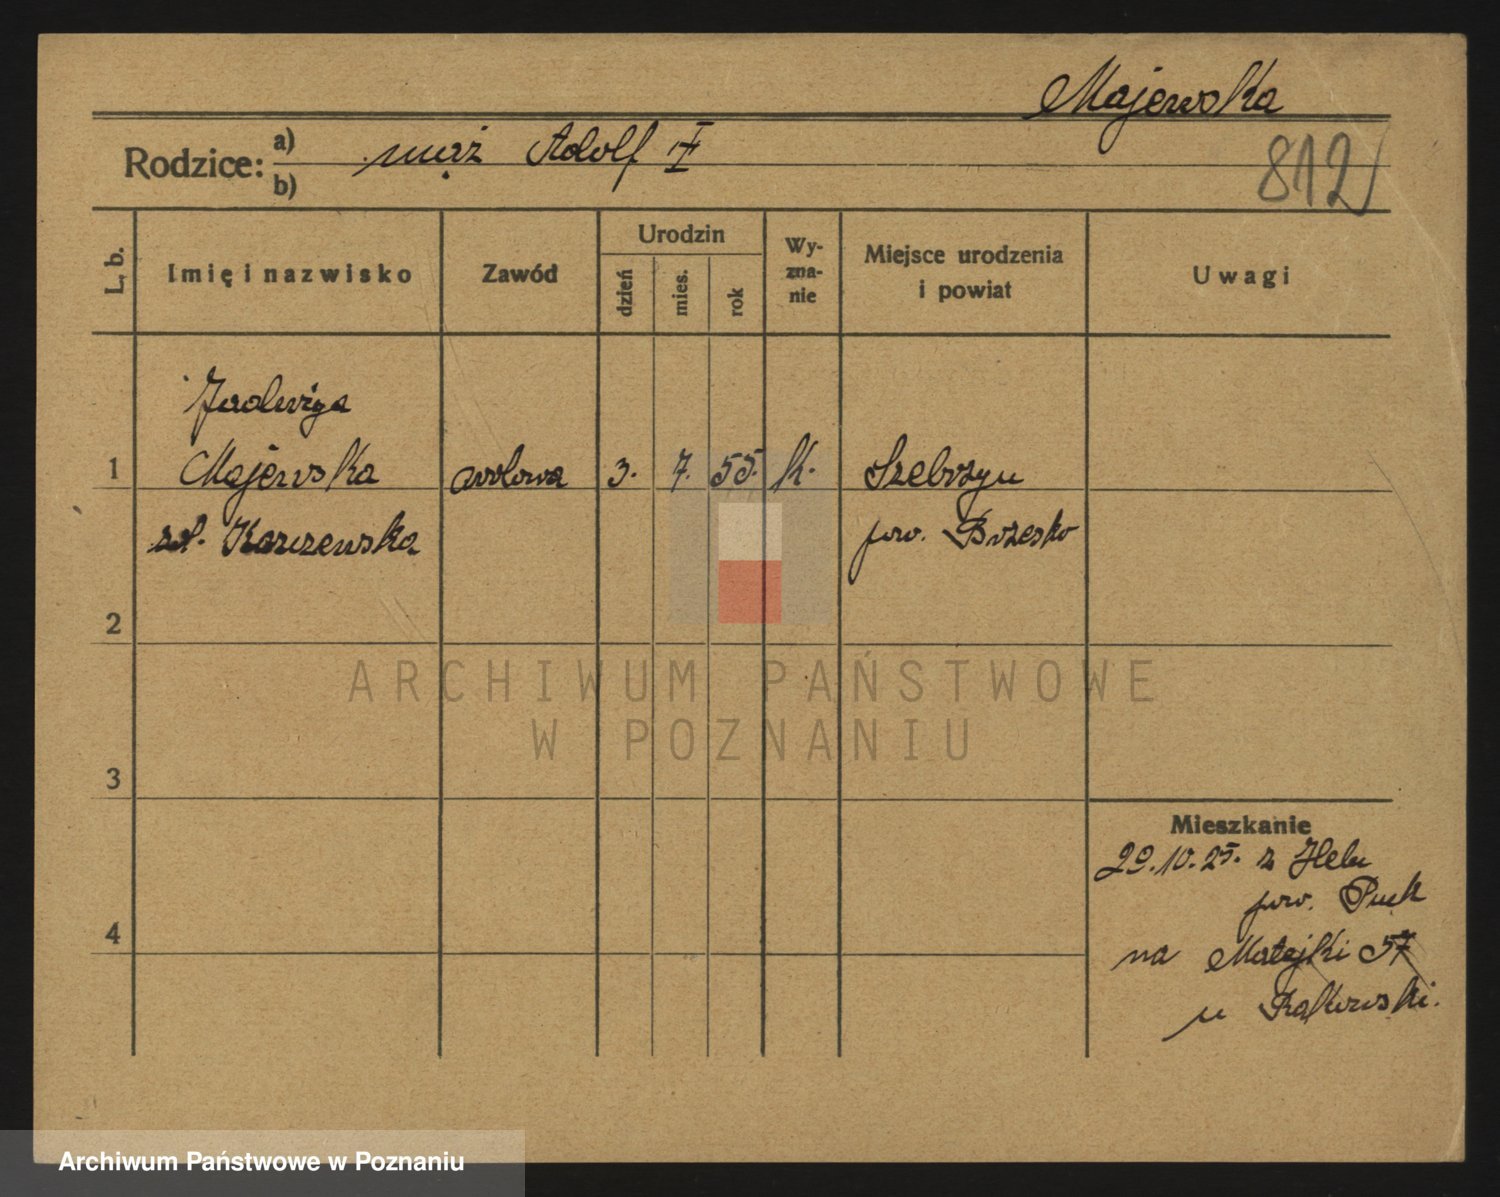 Majewska
812
Rodzice: a) mąż Adolf †
b)
L. b.
Imię i nazwisko
Zawód
Urodzin
dzień
mies.
rok
Wy-
zna-
nie
Miejsce urodzenia
i powiat
Uwagi
Jadwiga
1 Majewska wdowa 3. 7. 55. k. Szebrzyn
pow. Brzesko
2
3
4
Mieszkanie
29.10.25. z Helu
pow. Puck
na Matejki 57
u
ARCHIWUM PAŃSTWOWE
W POZNANIU
Archiwum Państwowe w Poznaniu